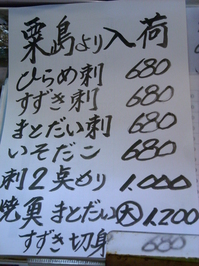 粟島より入荷
ひらめ刺 680
すずき刺 680
まとだい刺 680
いそだこ 680
刺2点もり 1.000
焼魚 まとだい大 1.200
すずき切身 680